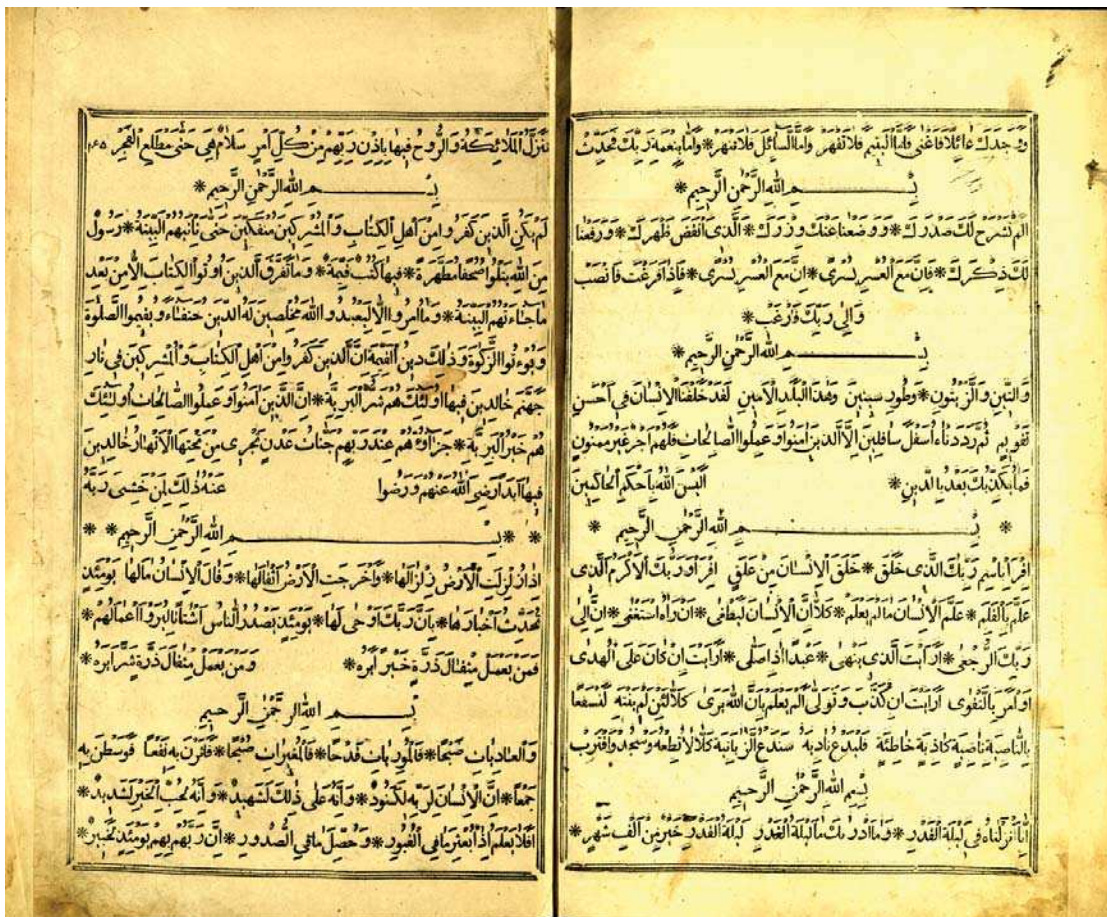 ووجدك عائلا فاغنى فاما اليتيم فلا تقهر واما السائل فلا تنهر * واما بنعمة ربك تحدث
بسم الله الرحمن الرحيم *
الم نشرح لك صدرك * ووضعنا عنك وزرك * الذى انقض ظهرك * ورفعنا
لك ذكرك * فان مع العسر يسرى * ان مع العسر يسرى * فاذا فرغت فانصب
والى ربك فارغب *
بسم الله الرحمن الرحيم *
والتين والزيتون * وطور سينين وهذا البلد الامين لقد خلقنا الانسان فى احسن
تقويم ثم رددناه اسفل سافلين الا الذين امنوا وعملوا الصالحات فلهم اجر غير ممنون
فما يكذبك بعد بالدين * اليس الله باحكم الحاكمين
* بسم الله الرحمن الرحيم *
اقرا باسم ربك الذى خلق * خلق الانسان من علق اقرا وربك الاكرم الذى
علم بالقلم * علم الانسان ما لم يعلم * كلا ان الانسان ليطغى * ان راه استغنى * ان الى
ربك الرجعى * ارايت الذى ينهى * عبدا اذا صلى * ارايت ان كان على الهدى
او امر بالتقوى ارايت ان كذب وتولى الم يعلم بان الله يرى كلا لئن لم ينته لنسفعا
بالناصية ناصية كاذبة خاطئة فليدع ناديه سندع الزبانية كلا لا تطعه وسجد واقترب
بسم الله الرحمن الرحيم
انا انزلناه فى ليلة القدر * وما ادراك ما ليلة القدر ليلة القدر خير من الف شهر *
تنزل الملائكة والروح فيها باذن ربهم من كل امر سلام هى حتى مطلع الفجر
بسم الله الرحمن الرحيم *
لم يكن الذين كفروا من اهل الكتاب والمشركين منفكين حتى تاتيهم البينة * رسول
من الله يتلوا صحفا مطهرة * فيها كتب قيمة * وما تفرق الذين اوتوا الكتاب الا من بعد
ما جاءتهم البينة * وما امروا الا ليعبدوا الله مخلصين له الدين حنفاء ويقيموا الصلوة
ويوءتوا الزكوة وذلك دين القيمة ان الذين كفروا من اهل الكتاب والمشركين فى نار
جهنم خالدين فيها اولئك هم شر البرية * ان الذين امنوا وعملوا الصالحات اولئك
هم خير البرية * جزاؤهم عند ربهم جنات عدن تجرى من تحتها الانهار خالدين
فيها ابدا رضى الله عنهم ورضوا عنه ذلك لمن خشى ربه
* * بسم الله الرحمن الرحيم * *
اذا زلزلت الارض زلزالها * واخرجت الارض اثقالها * وقال الانسان ما لها يومئذ
تحدث اخبارها * بان ربك اوحى لها * يومئذ يصدر الناس اشتاتا ليروا اعمالهم *
فمن يعمل مثقال ذرة خيرا يره * ومن يعمل مثقال ذرة شرا يره *
بسم الله الرحمن الرحيم
والعاديات ضبحا * فالموريات قدحا * فالمغيرات صبحا * فاثرن به نقعا فوسطن به
جمعا * ان الانسان لربه لكنود * وانه على ذلك لشهيد * وانه لحب الخير لشديد *
افلا يعلم اذا بعثر ما فى القبور * وحصل ما فى الصدور * ان ربهم بهم يومئذ لخبير *